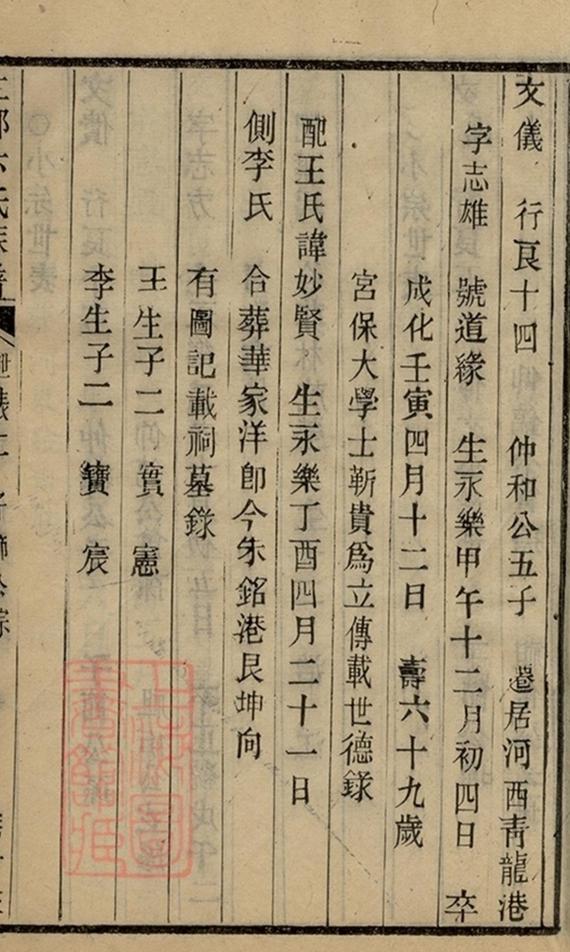 文儀 行良十四 仲和公五子 遷居河西青龍港
字志雄 號道緣 生永樂甲午十二月初四日 卒
成化壬寅四月十二日 壽六十九歲
宮保大學士靳貴為立傳載世德錄
配王氏諱妙賢 生永樂丁酉四月二十一日
側李氏 合葬華家洋卽今朱銘港艮坤向
有圖記載祠墓錄
王生子二 實 憲
李生子二 寶 宸